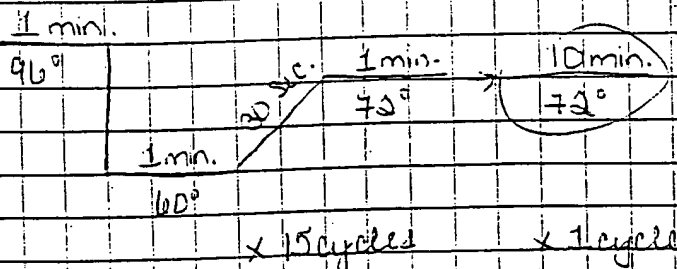 1 min.
96°
30 sec.
1 min.
72°
10 min.
72°
1 min.
60°
x 15 cycles
x 1 cycle